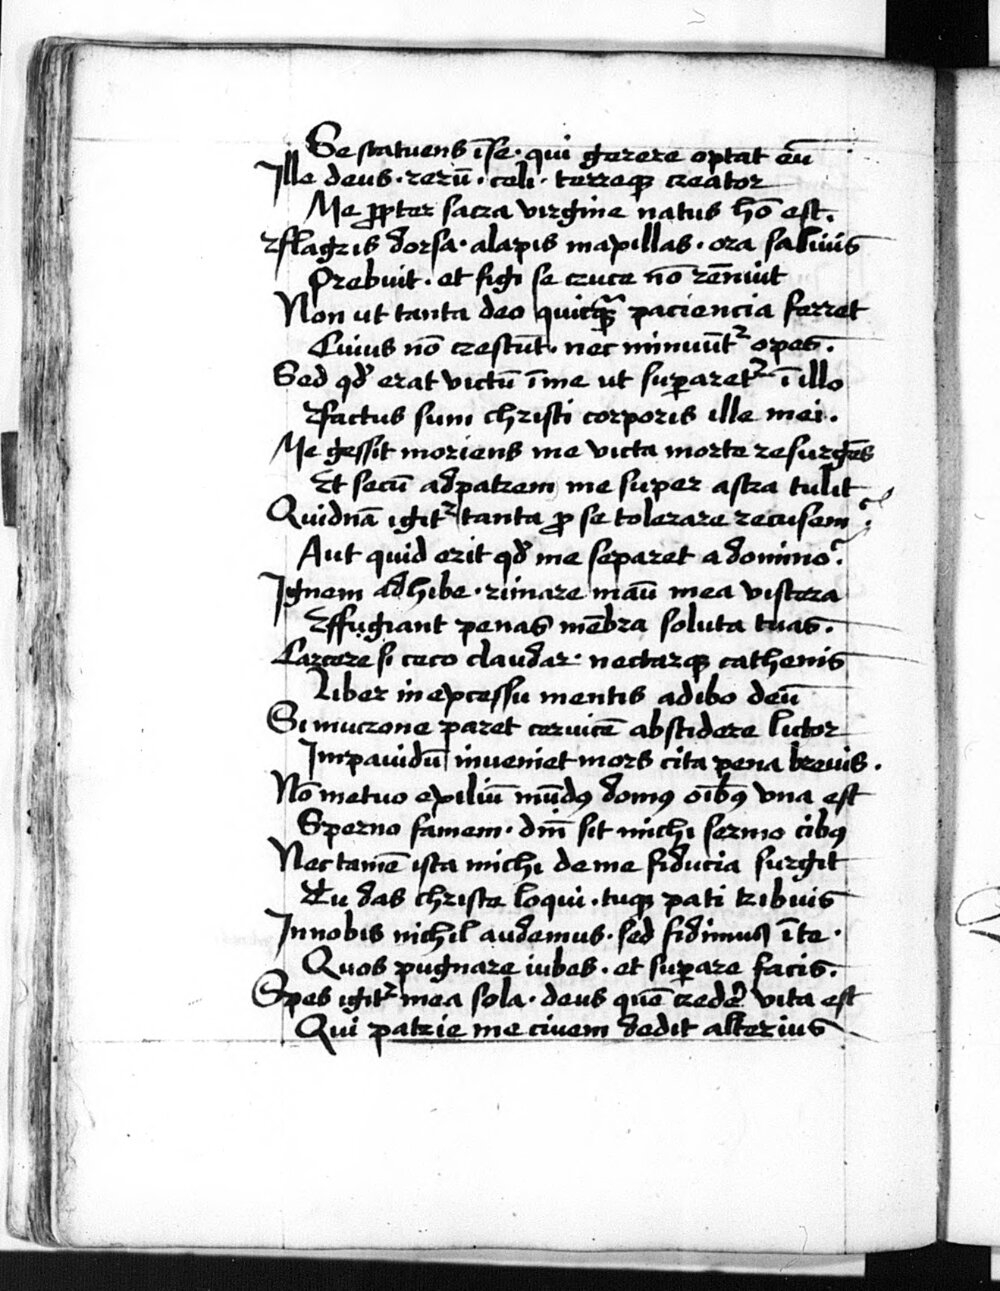 Se statuens ī se · qui gerere optat eū
Ille deus · rerū · celi · terreqꝫ creator
Me ꝓpter sacra virgine natus hō est .
Et flagris dorsa · alapis maxillas · ora salivis
Prebuit · et figi se cruce nō rēnuit
Non ut tanta deo quicꝙ̄ paciencia ferret
Cuius nō crescūt · nec minuūtᷣ opes .
Sed qđ erat victū ī me ut suꝑaretᷣ ī illo
Factus sum christi corporis ille mei .
Me gessit moriens me victa morte resurgēs
Et secū ad patrem me super astra tulit
Quidnā igitᷣ tanta ꝓ se tolerare recusem ?
Aut quid erit qđ me separet a domino ?
Ignem adhibe · rimare manū mea viscera
Effugiant penas mēbra soluta tuas .
Carcere si ceco claudar · nectarqꝫ cathenis
Liber in excessu mentis adibo deū
Si mucrone paret cervicē abscidere lictor
Impavidū inveniet mors cita pena brevis .
Nō metuo exiliū mūdꝰ domꝰ oībꝰ vna est
Sperno famem · dn̄i sit michi sermo cibꝰ
Nec tamē ista michi de me fiducia surgit
Tu das christe loqui · tuqꝫ pati tribuis
In nobis nichil audemus · sed fidimus ī te ·
Quos pugnare iubes · et suꝑare facis .
Spes igitᷣ mea sola · deus quē credeꝰ vita est
Qui patrie me civem dedit alterius